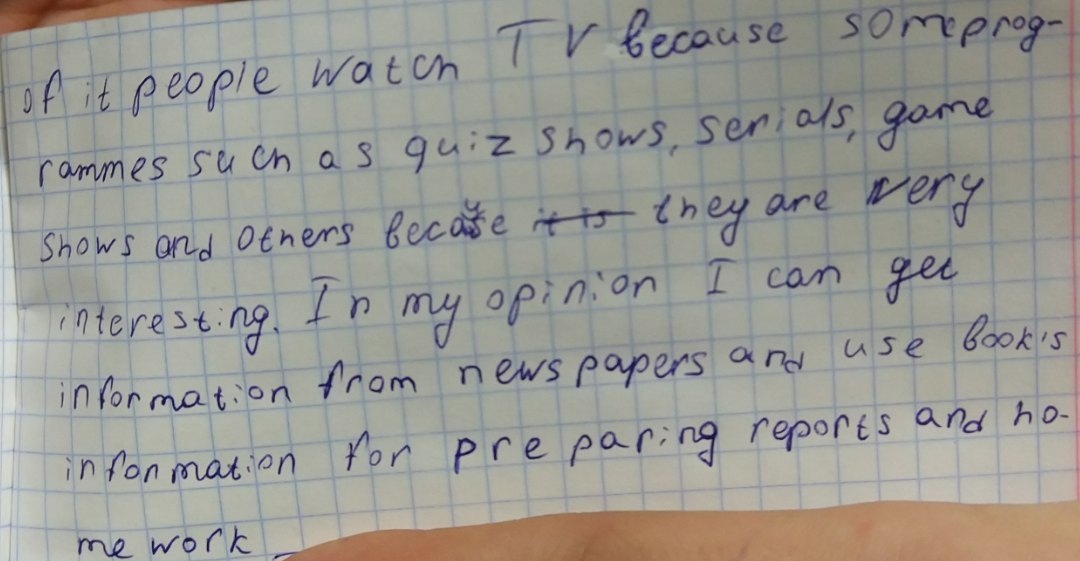 of it people watch TV because some prog-
rammes such as quiz shows, serials, game
shows and others because it is they are very
interesting. In my opinion I can get
information from newspapers and use book's
information for preparing reports and ho-
me work